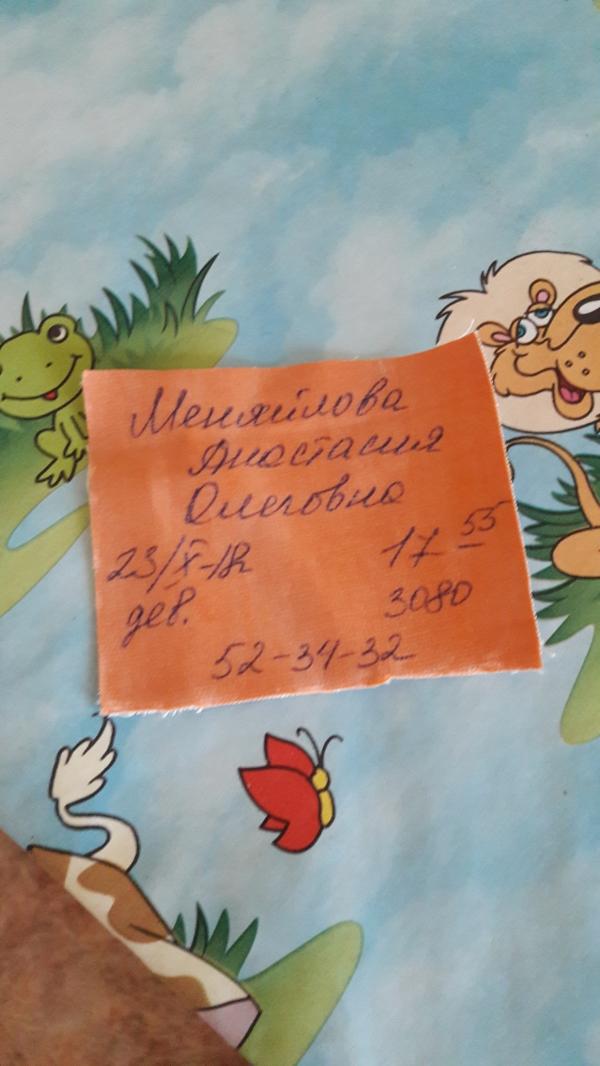 Меняйлова
Анастасия
Олеговна
23/X-18г 17 55
дев. 3080
52-34-32